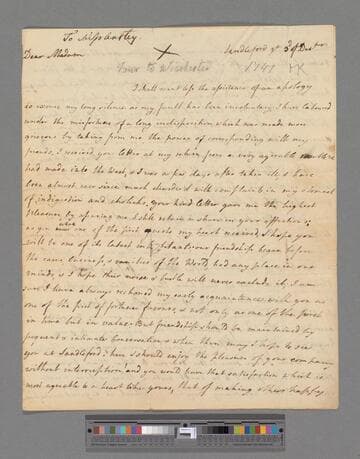 To Miss Anstey.
Dear Madam Sandleford ye 3d of Decbr
Tour to Winchester 1741 HX
I shall want less the assistance of an apology
to excuse my long silence as my fault has been involuntary. I have labourd
under the misfortune of a long indisposition which was made more
grievous by taking from me the power of corresponding with my
friends, I received your letter at my return from a very agreable
had made into the West, & I was a few days after taken ill, & have
been almost ever since much disorder'd with complaints in my stomach
of indigestion and cholick, your kind letter gave me the highest
pleasure by assuring me I still retain a share in your affections;
as you were one of the first my heart received I hope you
will be one of its latest friendship began before
the cares, business, & vanities of the World had any place in our
minds, & I hope their noise & bustle will never exclude it; I am
sure I have always reckoned my early acquaintance with you as
one of the first of fortunes favours, & not only as one of the first
in time but in value. But friendship should be maintained by
frequent & intimate Conversation & when then may I hope to see
you at Sandleford? here I should enjoy the pleasure of your company
without interruption and you would have that satisfaction which is
most agreable to a heart like yours, that of making others happy,